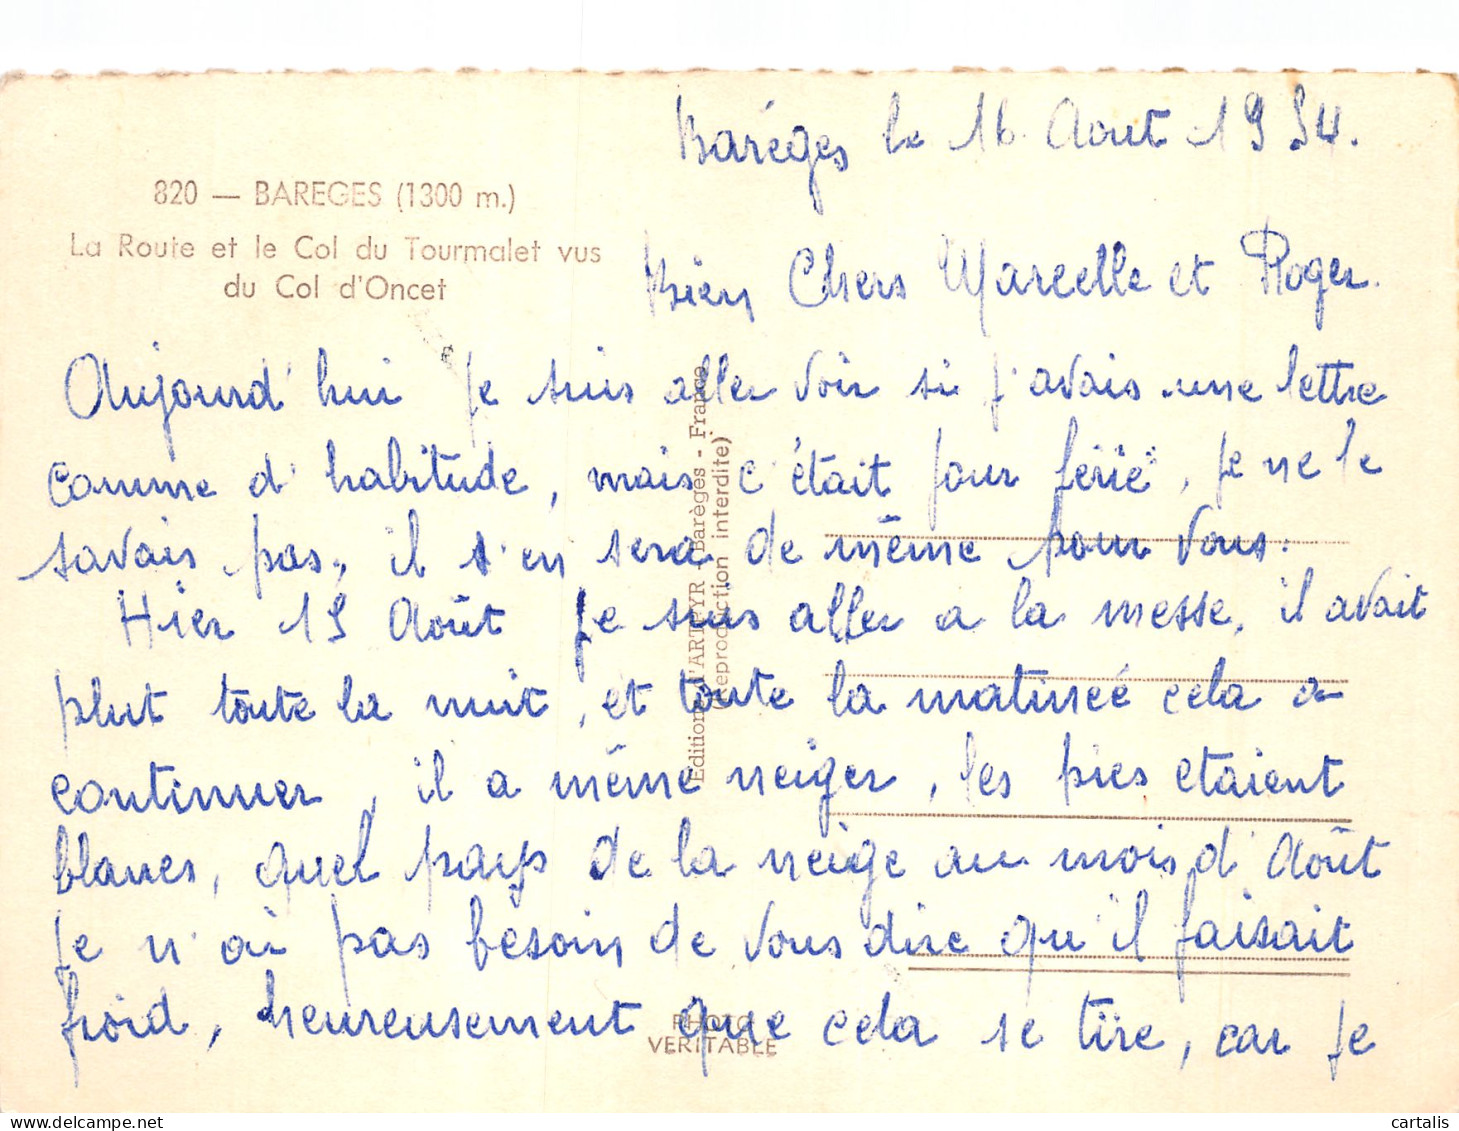 Baréges le 16 Aout 1954.
820 — BAREGES (1300 m.)
La Route et le Col du Tourmalet vus
du Col d'Oncet
Bien Chers Marcelle et Roger.
Aujourd'hui je suis aller voir si j'avais une lettre
comme d'habitude, mais c'était jour férié, je ne le
savais pas, il s'en sera de même pour vous.
Hier 15 Août je suis aller a la messe, il avait
plut toute la nuit, et toute la matineé cela a
continuer, il a même neiger, les pics etaient
blancs, quel pays de la neige au mois d'Août
je n'ai pas besoin de vous dire qu'il faisait
froid, heureusement que cela se tire, car je
Editions d'ART YR Barèges - France
(Reproduction interdite)
PHOTO
VERITABLE
cartalis